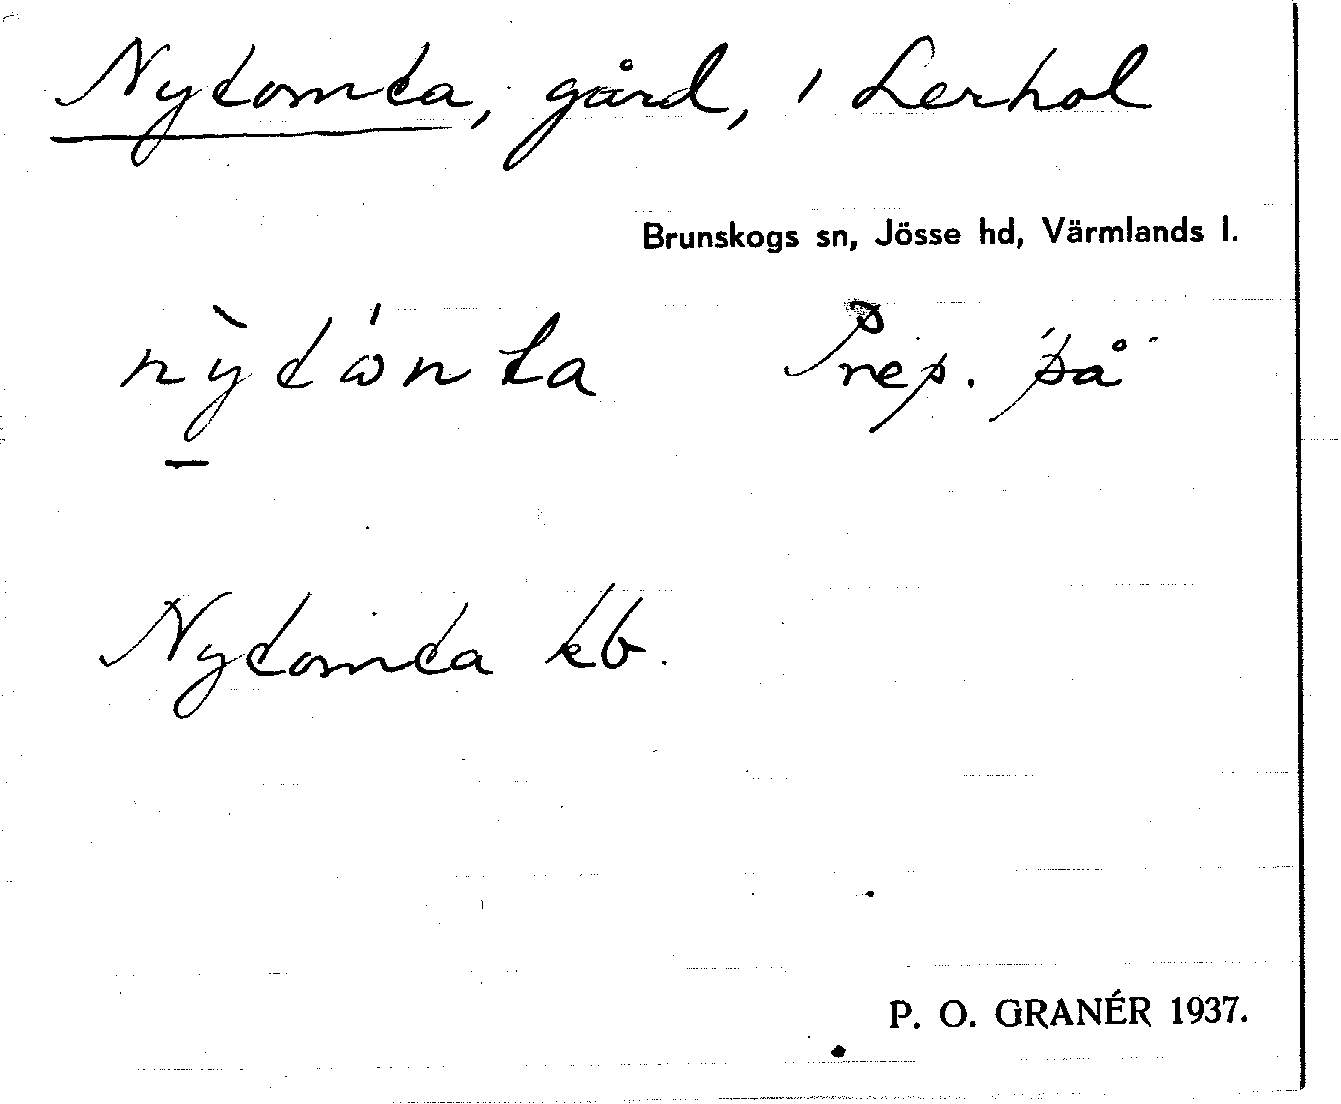 Nytomta, gård, i Lerhol
Brunskogs sn, Jösse hd, Värmlands l.
Prep. på
Nytomta kb.
P. O. GRANÉR 1937.